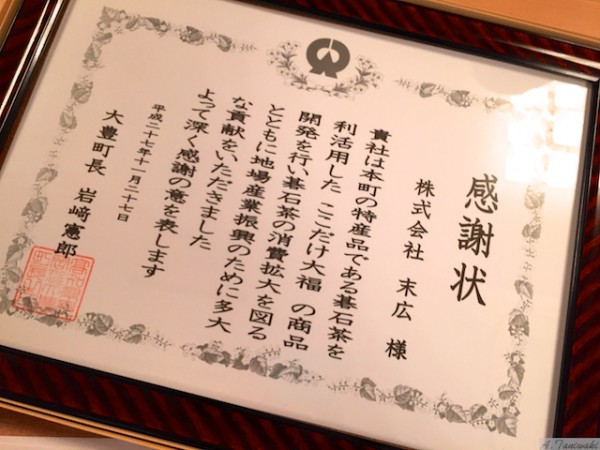 感謝状
株式会社 末広 様
貴社は本町の特産品である碁石茶を
利活用した ここだけ大福 の商品
開発を行い碁石茶の消費拡大を図る
とともに地場産業振興のために多大
な貢献をいただきました
よって深く感謝の意を表します
平成二十七年十一月二十七日
大豊町長 岩﨑 憲郎
A.Taniwaki